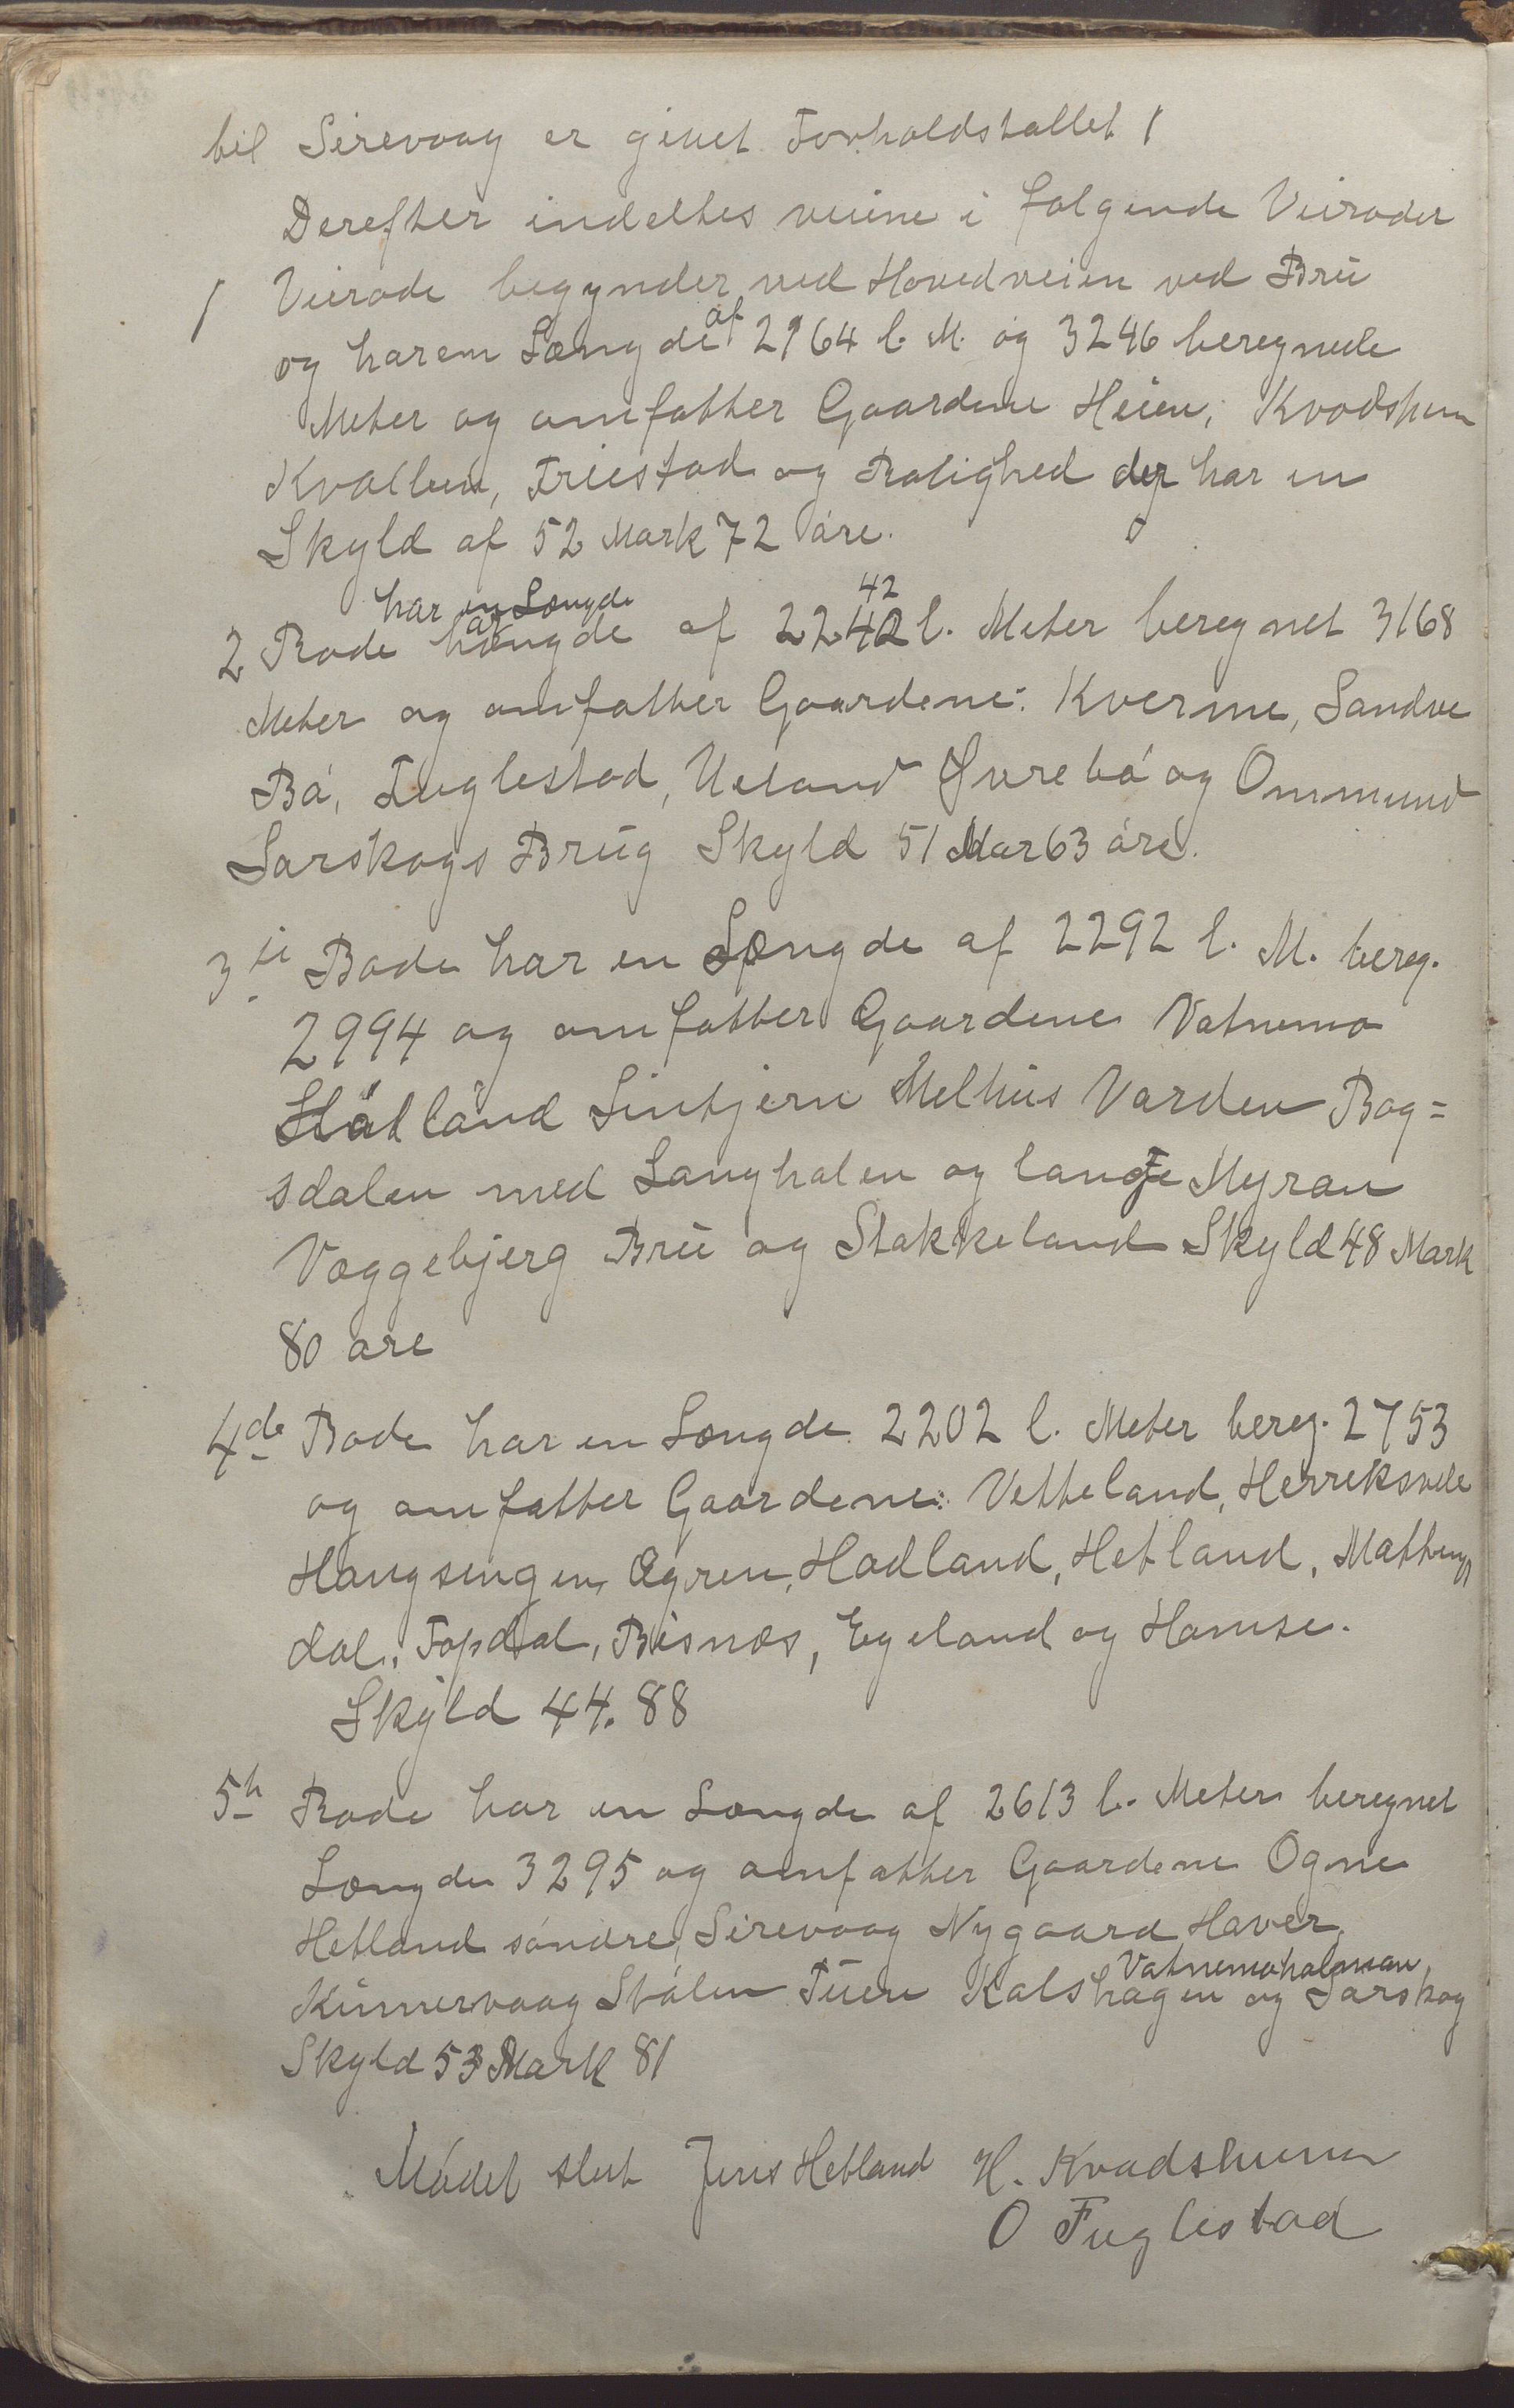 til Sirevaag er givet Forholdstallet 1
Derefter indeltes veiene i følgende Veiroder
1 Veirode begynder ved Hovedveien ved Brü
og har en Længde af 2164 l. M. og 3246 beregnede
Meter og omfatter Gaardene Heien, Kvodshum
Kvallen, Friestad og Rolighed der har en
Skyld af 52 Mark 72 øre.
har en Længde
2 Rode længde af 2242 l. Meter beregnet 3168
42
Meter og omfatter Gaardene: Kverme, Sandve
Bø, Fuglestad, Ueland Øvrebø og Ommund
Larskogs Brüg Skyld 51 Mar 63 øre.
3die Rode har en Længde af 2292 l. M. bereg.
2994 og omfatter Gaardene Vatnemo
Hätland Lintjern Melhus Varden Bog=
sdalen med Langhalen og lange Myran
Væggebjerg Brü og Stakkeland Skyld 48 Mark
80 øre
4de Rode har en Længde 2202 l. Meter bereg. 2753
og omfatter Gaardene: Vetteland, Herreksvele
Haugsengen, Øgren, Hadland, Hetland, Mattings
dal, Topdal, Bisnæs, Egeland og Homse.
Skyld 44.88
5te Rode har en Længde af 2613 l. Meter beregnet
Længde 3295 og omfatter Gaardene Ogne
Hetland søndre, Sirevaag Nygaard Haver,
Vatnemoholman
Künnervaag Stølen Tüen Kalshagen og Larskog
Skyld 53 Mark 81
Mødet slut Jens Hetland H. Kvadsheim
O Fuglestad